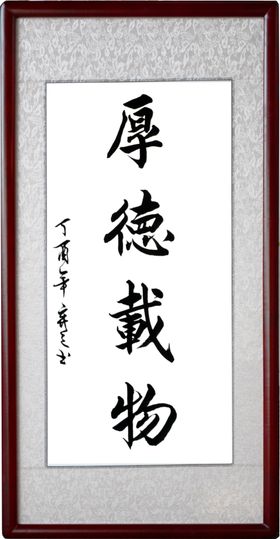 厚德載物
丁酉年 弃之书